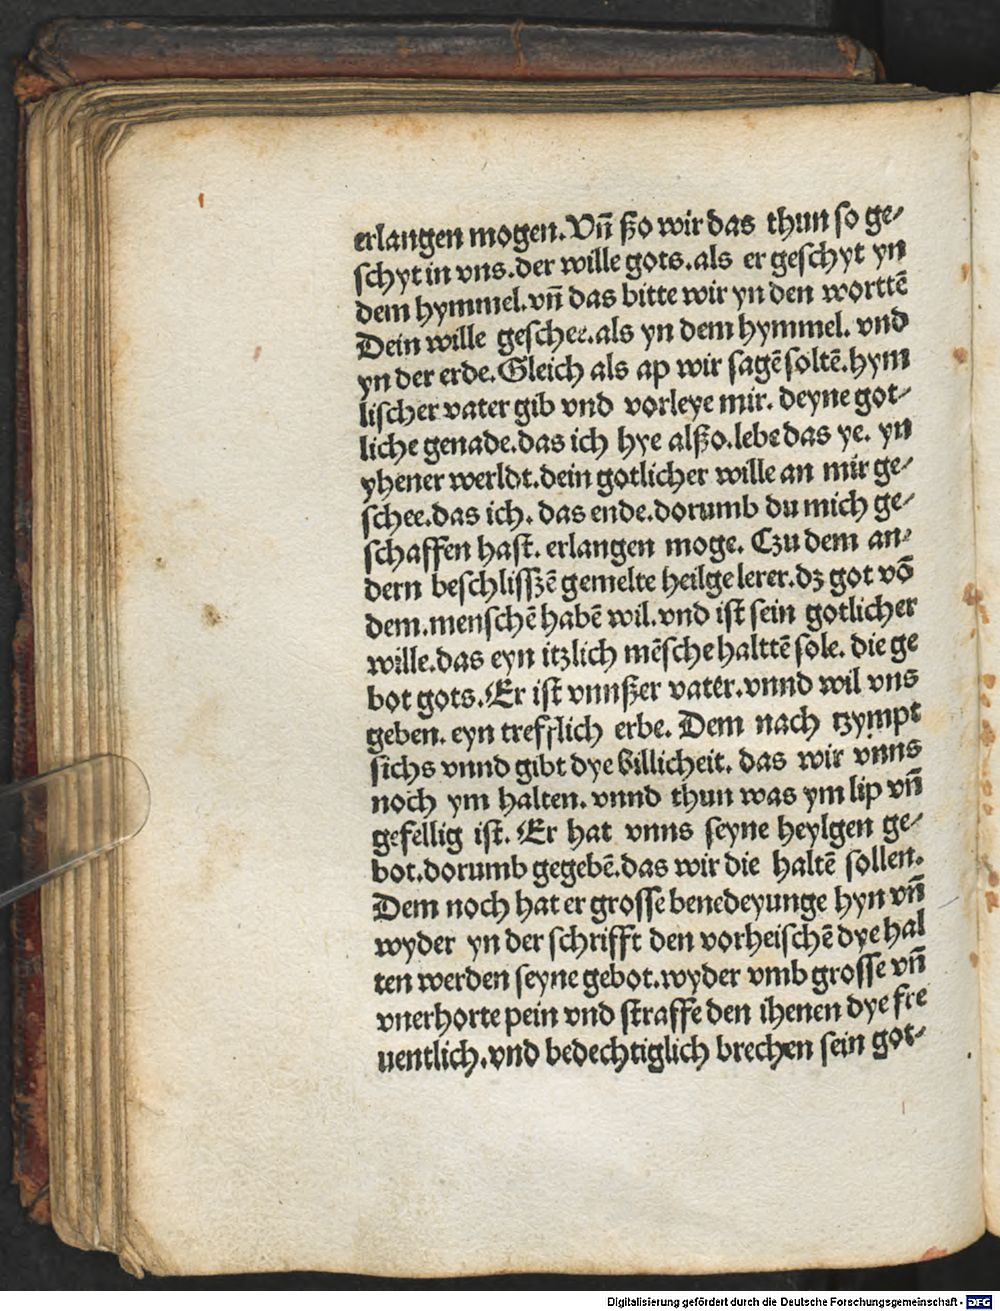 erlangen mogen. Vñ ßo wir das thun so ge⸗
schyt in vns. der wille gots. als er geschyt yn
dem hymmel. vñ das bitte wir yn den worttē
Dein wille geschee. als yn dem hymmel. vnd
yn der erde. Gleich als ap wir sagē soltē. hym
lischer vater gib vnd vorleye mir. deyne got⸗
liche genade. das ich hye alßo. lebe das ye. yn
yhener werldt. dein gotlicher wille an mir ge⸗
schee. das ich. das ende. dorumb du mich ge⸗
schaffen hast. erlangen moge. Czu dem an⸗
dern beschlisszē gemelte heilge lerer. dz got vō
dem. menschē habē wil. vnd ist sein gotlicher
wille. das eyn itzlich mēsche halttē sole. die ge
bot gots. Er ist vnnßer vater. vnnd wil vns
geben. eyn trefflich erbe. Dem nach tzympt
sichs vnnd gibt dye billicheit. das wir vnns
noch ym halten. vnnd thun was ym lip vñ
gefellig ist. Er hat vnns seyne heylgen ge⸗
bot. dorumb gegebē. das wir die haltē sollen.
Dem noch hat er grosse benedeyunge hyn vñ
wyder yn der schrifft den vorheischē dye hal
ten werden seyne gebot. wyder vmb grosse vñ
vnerhorte pein vnd straffe den ihenen dye fre
uentlich. vnd bedechtiglich brechen sein got⸗
Digitalisierung gefördert durch die Deutsche Forschungsgemeinschaft - DFG